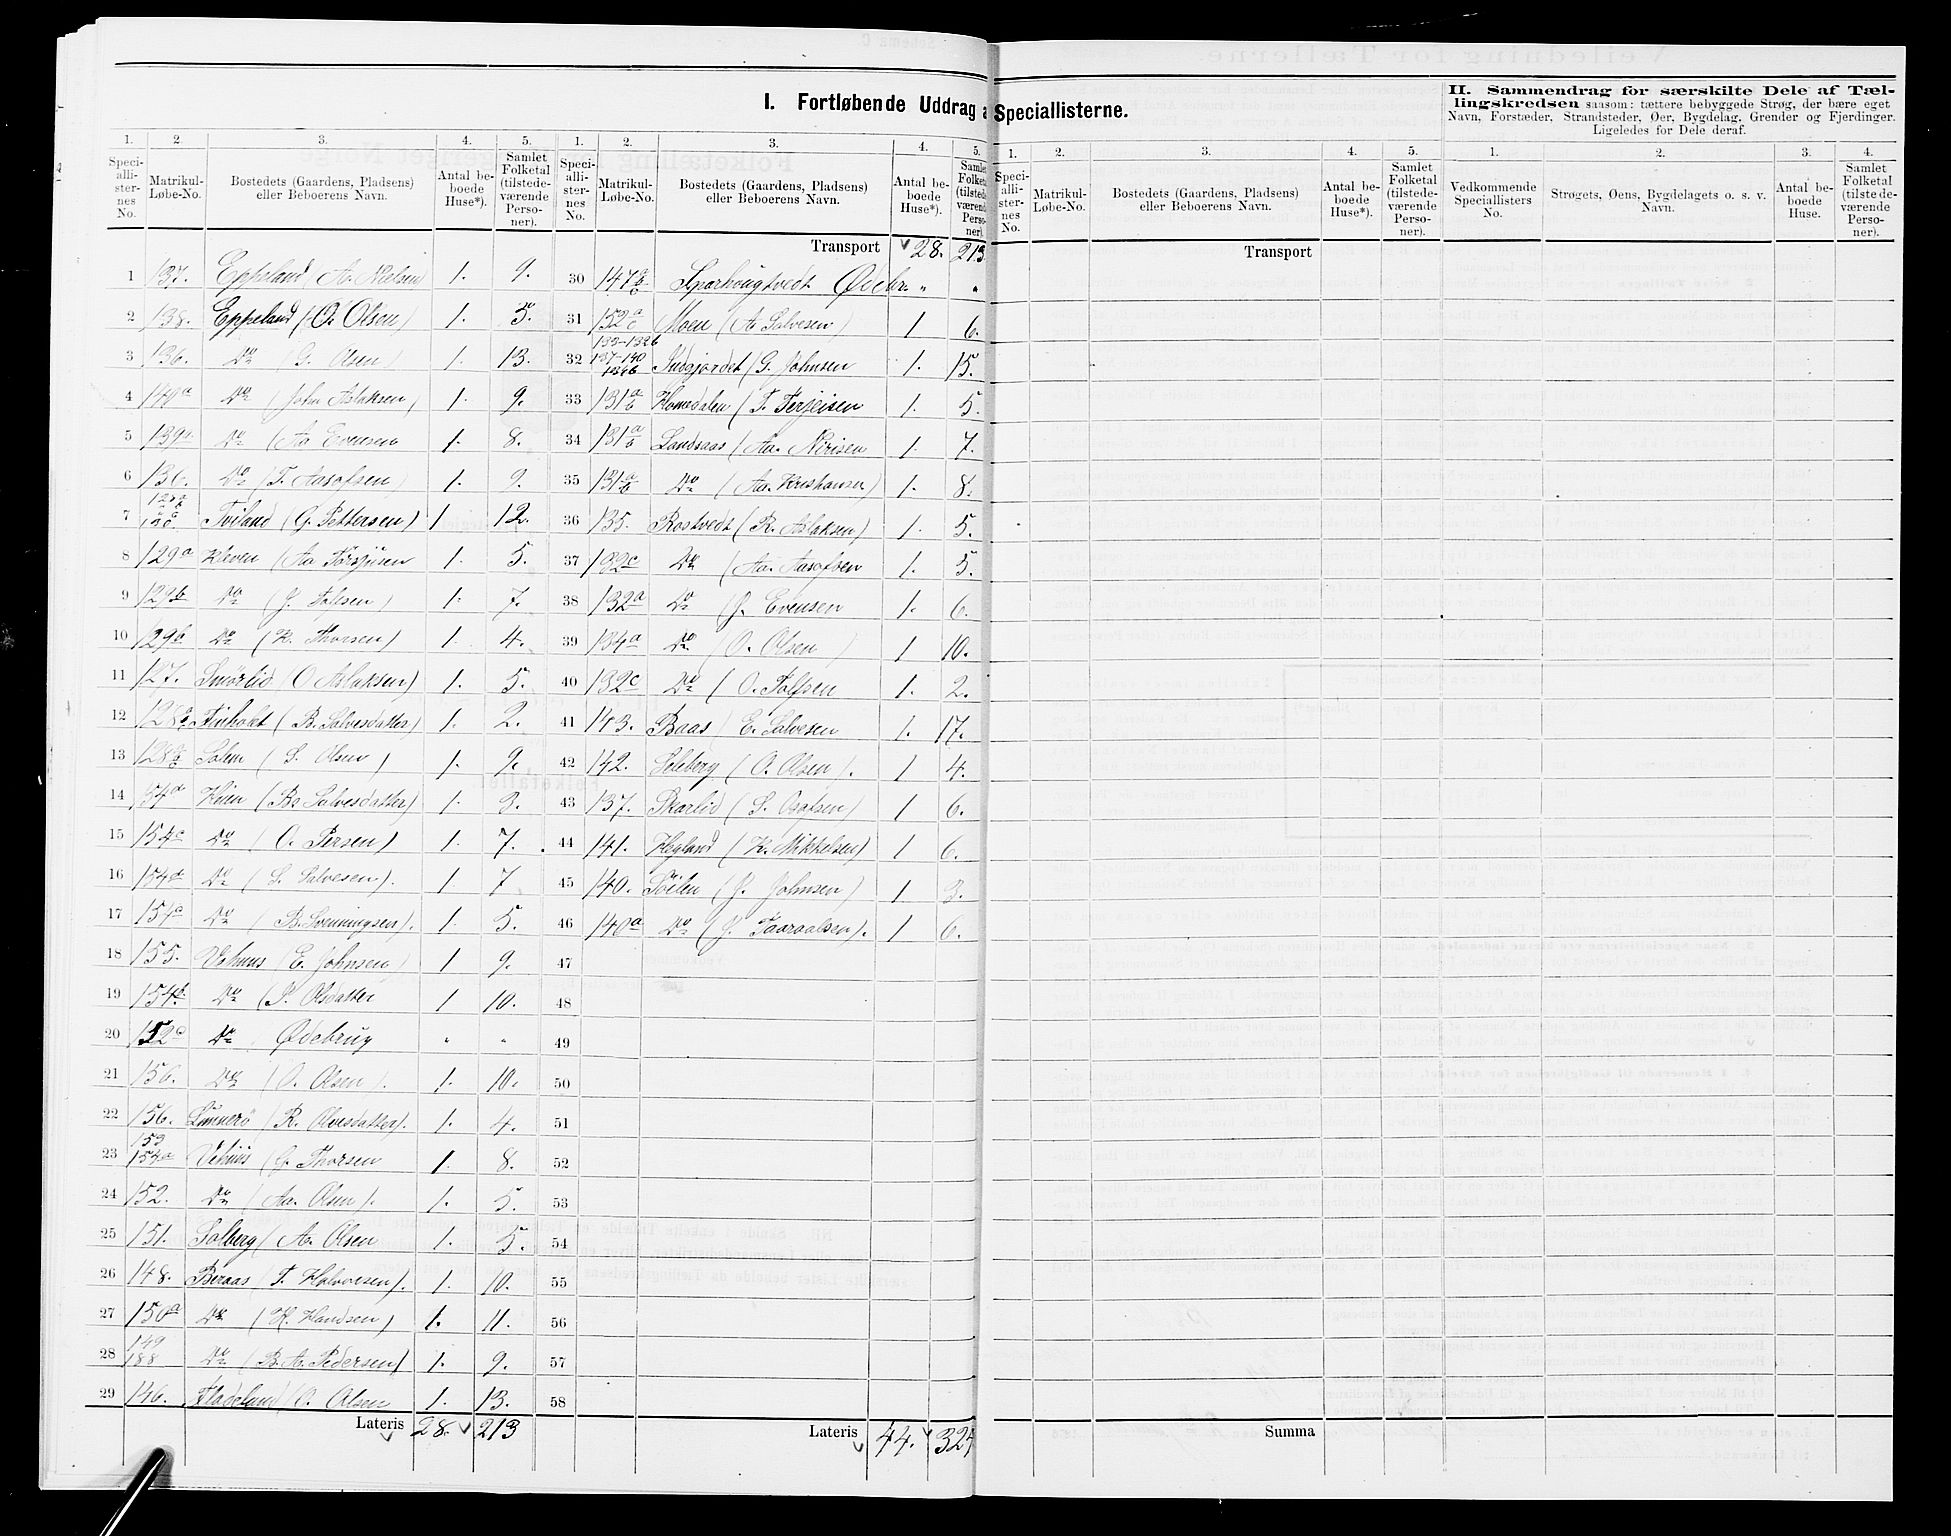 I. Fortløbende Uddrag a Speciallisterne.
II. Sammendrag for særskilte Dele af Tæl-
lingskredsen saasom: tættere bebyggede Strøg, der bære eget
Navn, Forstæder, Strandsteder, Øer, Bygdelag, Grender og Fjerdinger.
Ligeledes for Dele deraf.
1. 2. 3. 4. 5. 1. 2. 3. 4. 5. 1. 2. 3. 4. 5. 1. 2. 3. 4.
Speci-alli-ster-nes No. Matrikul-Løbe-No. Bostedets (Gaardens, Pladsens) eller Beboerens Navn. Antal be-boede Huse*). Samlet Folketal (tilstede-værende Perso-ner).
Speci-alli-ster-nes No. Matrikul-Løbe-No. Bostedets (Gaardens, Pladsens) eller Beboerens Navn. Antal be-boede Huse*). Samlet Folketal (tilstede-værende Perso-ner).
Speci-alli-ster-nes No. Matrikul-Løbe-No. Bostedets (Gaardens, Pladsens) eller Beboerens Navn. Antal be-boede Huse*). Samlet Folketal (tilstede-værende Perso-ner).
Vedkommende Speciallisters No. Strøgets, Øens, Bygdelagets o. s. v. Navn. Antal be-boede Huse. Samlet Folketal (tilstede-værende Perso-ner).
1 137. Eppeland (A. Nielsen 1. 9.
2 138. Eppeland (O. Olsen) 1. 5.
3 136. Do (G. Olsen) 1. 13.
4 140a Do (John Aslaksen) 1. 9.
5 139a Do (Aa Evensen 1. 8.
6 136. Do (T. Aasofsen) 1. 9.
7 Tviland (G. Pettersen) 1 12.
8 129a Kleven (Aa Torgiusen 1. 5.
9 129b Do (J. Tolfsen) 1. 7.
10 129b Do (K. Thorsen) 1. 4.
11 127. Smørlid (O Aslaksen) 1. 5.
12 (B. Salvesdatter) 1. 2.
13 Solem (S. Olsen) 1. 9.
14 54a (B. Salvesdatter) 1. 3.
15 154c Do (O. Persen) 1. 7.
16 154d Do (S. Salvesen). 1 7
17 154c Do (B. Svenningsen). 1. 5.
18 155. Vehuus (E. Johnsen) 1 9.
19 154b. Do (S. Olsdatter 1 10.
20 152c Do Ødebrug " "
21 156. Do (O. Olsen). 1. 10.
22 156. Lunnerö (R. Olvesdatter). 1. 4.
23 153 154a Vehuus (G. Thorsen 1. 8.
24 152. Do (Aa. Olsen). 1. 5.
25 151. Solberg (A. Olsen 1. 5.
26 148. Beraas (T. Halvorsen). 1. 10.
27 150a Do (K. Handsen) 1. 11.
28 149 188 Do (B. A. Pedersen) 1. 9.
29 146. Fladeland (O. Olsen 1. 13.
Lateris 28. 213
Transport 28. 213
30 147 Ødebr. " "
31 152a c Moen (A. Salvesen) 1 6.
32 137-140 (G. Johnsen 1. 15.
33 131a b Homdalen (T. Terjeisen 1. 5.
34 131a b Landsaas (Aa. 1. 7.
35 131a b Do (Aa. Kristiansen) 1. 8.
36 135. Rostvedt (R. Aslaksen) 1. 5.
37 132c Do (Aa. Aasofsen 1. 5.
38 132a Do (J. Evensen 1. 6.
39 134a Do (O. Olsen) 1 10.
40 132c Do (O. Tolfsen 1. 2.
41 143. Baas (E. Salvesen 1. 17.
42 142. Soleberg (O. Olsen). 1 4.
43 137. Skarlid (S. Osofsen) 1 6.
44 141. Hegland (K. Mikkelsen) 1 6.
45 140. Töilen (J. Johnsen) 1 3.
46 140a Do (J. Taaraldsen). 1 6.
47
48
49
50
51
52
53
54
55
56
57
58
Lateris 44. 324
Transport
Summa